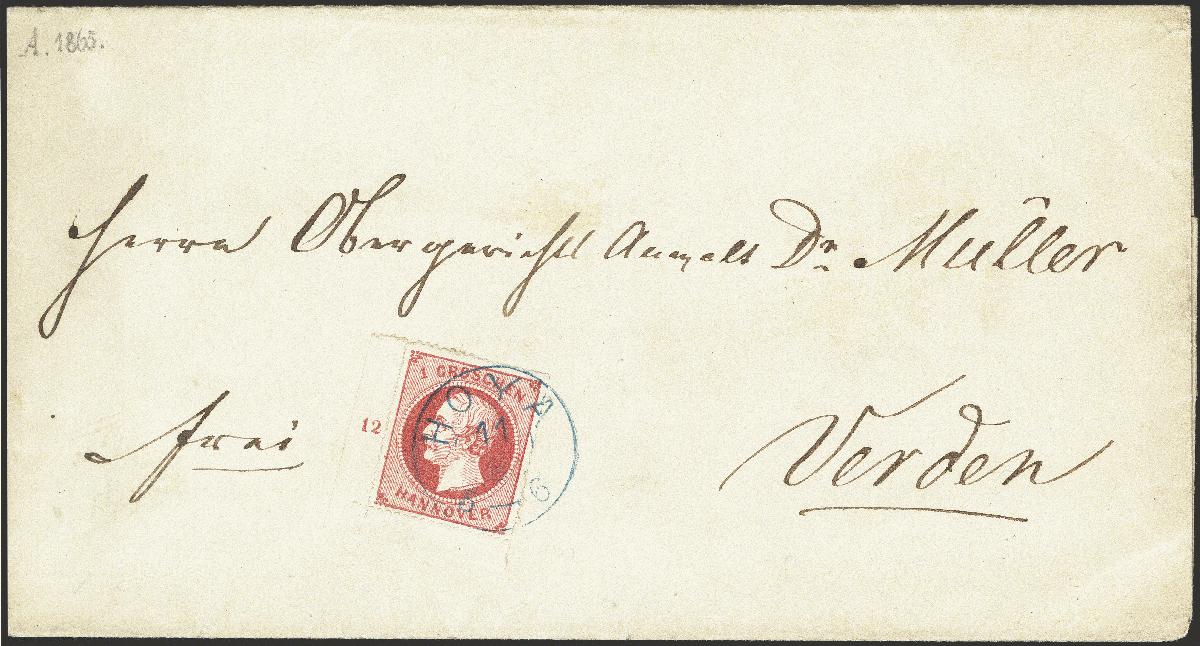 A. 1865.
Herrn Obergerichts Anwalt Dr. Müller
frei
Verden
12
1 GROSCHEN
HANNOVER
HOYA
11
5 - 6